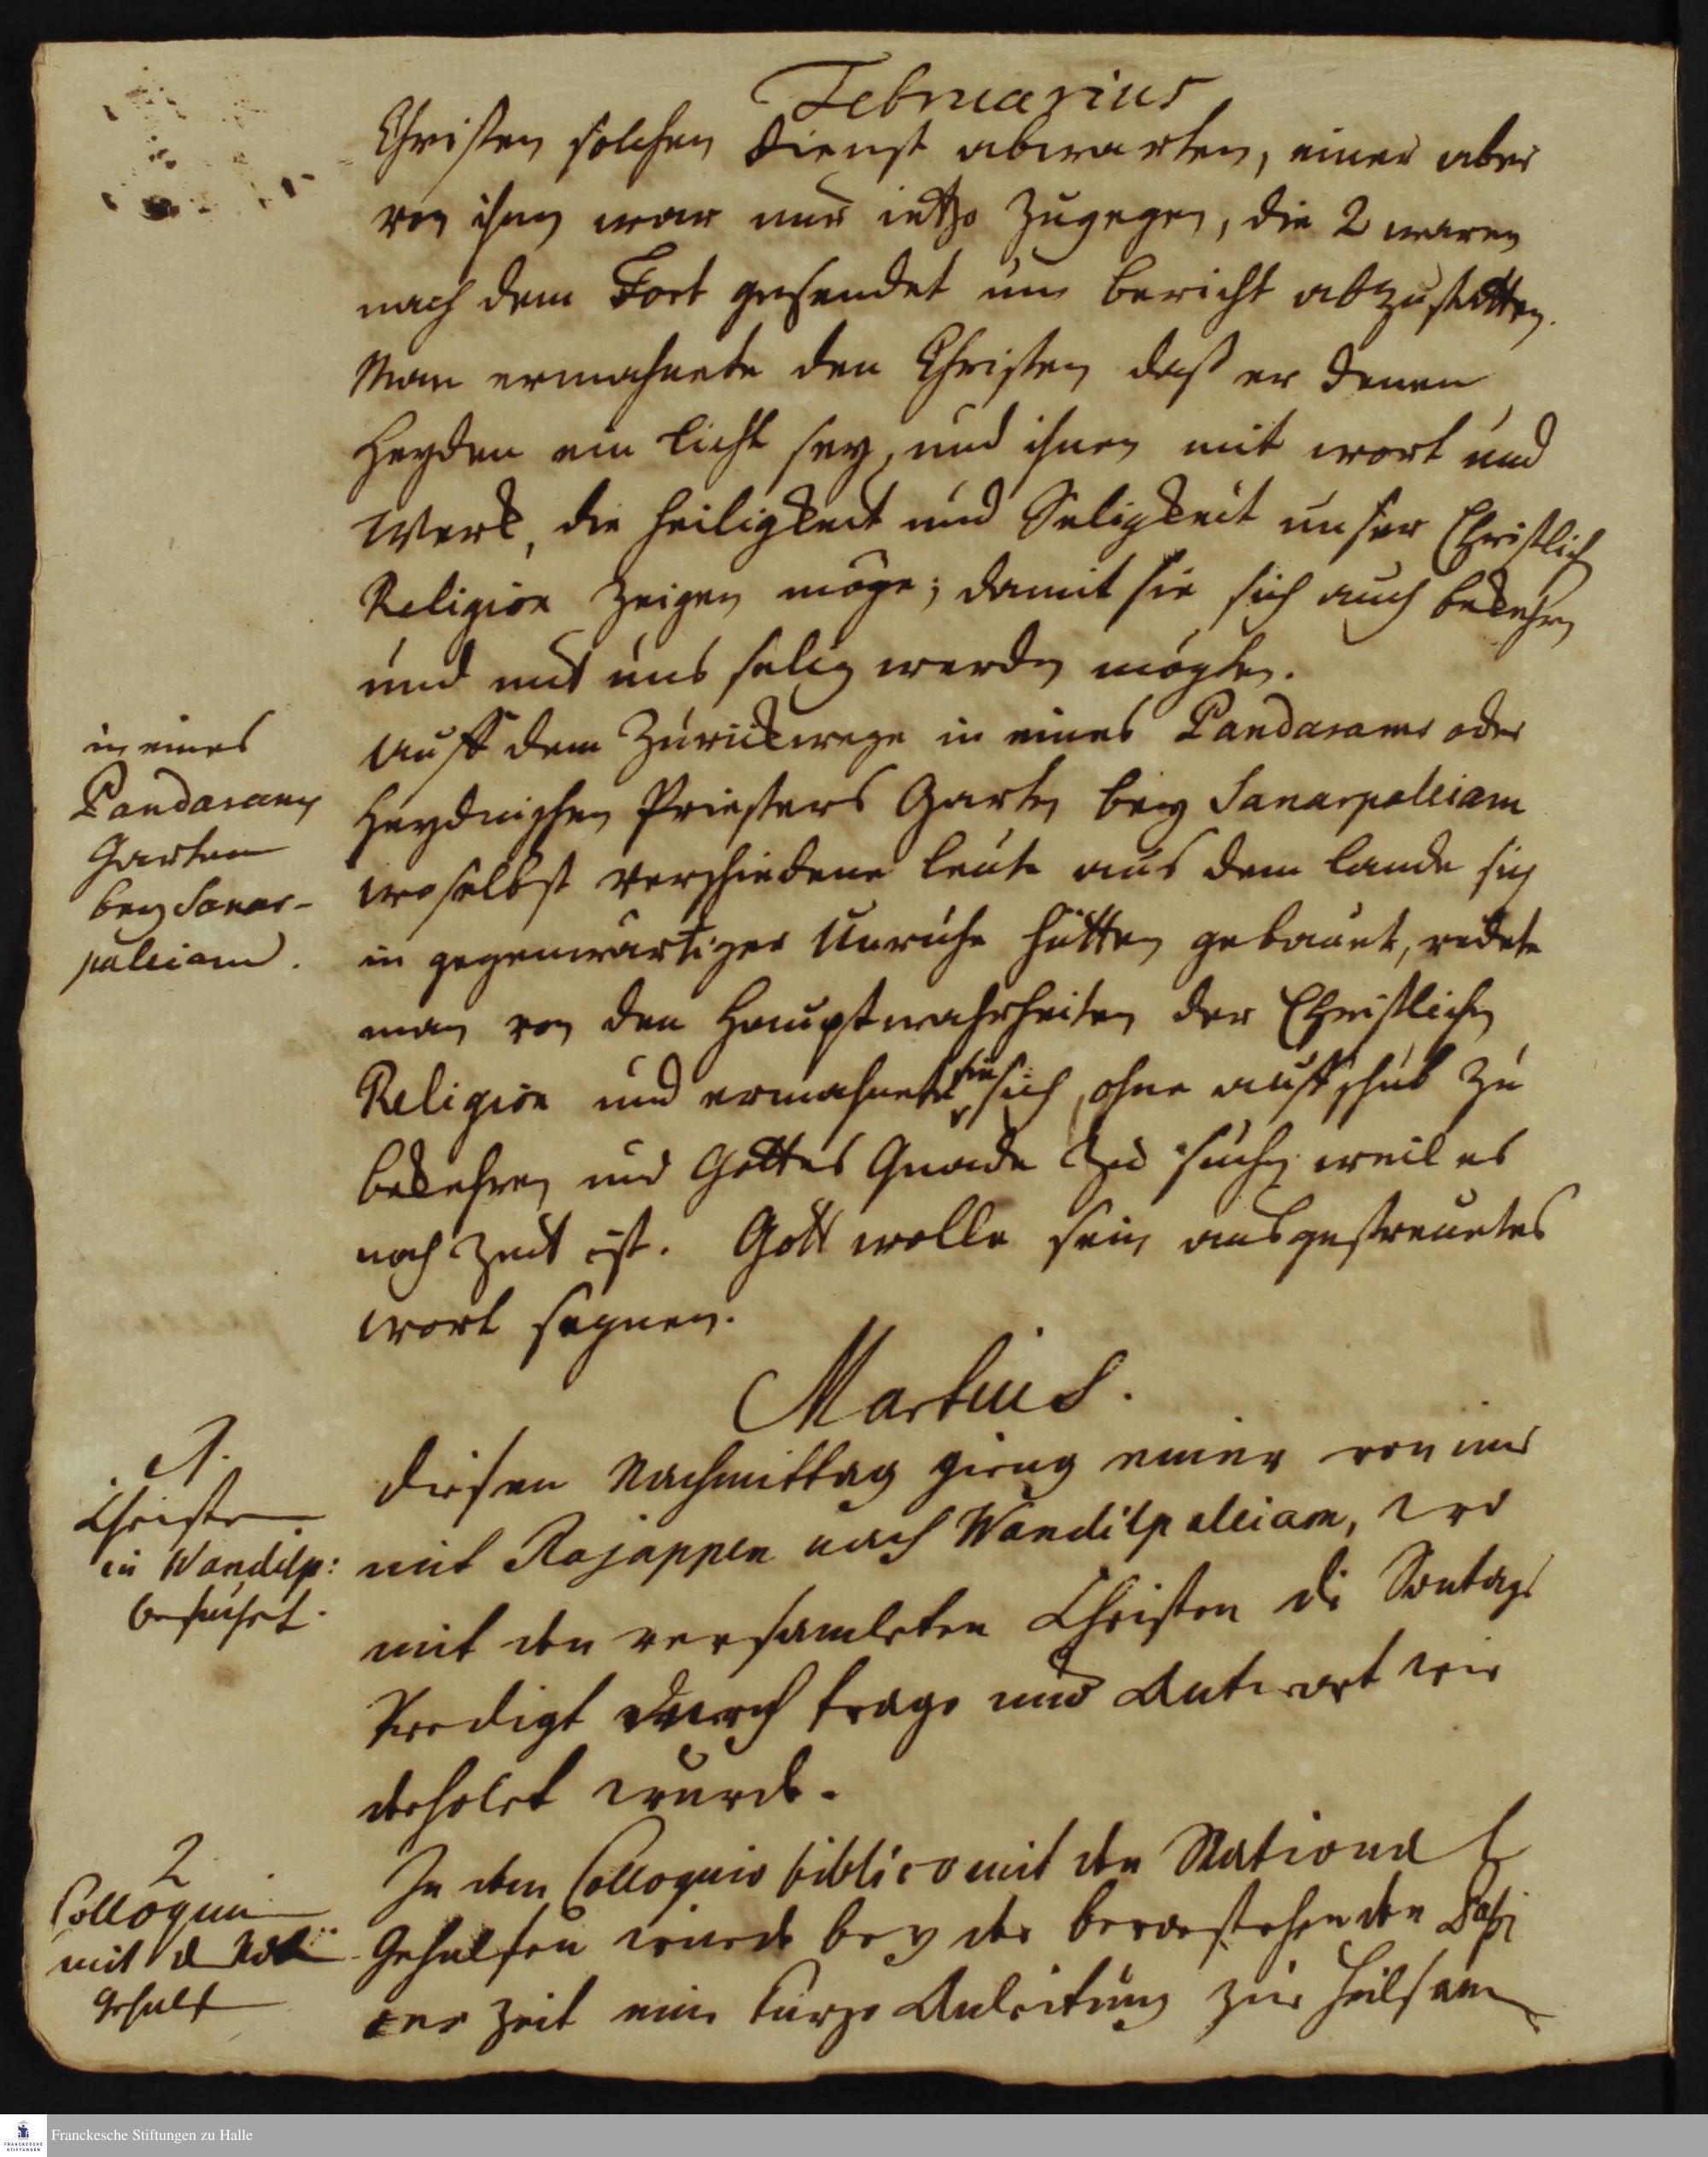 Februarius
Christen solchen Dienst abwarten, einer aber
von ihnen war nur ietzo zugegen, die 2 waren
nach dem Fort gesendet um bericht abzustatten.
Man ermahnete den Christen daß er denen
Heyden ein licht sey, und ihnen mit wort und
Werk, die heiligkeit und Seligkeit unser Christlich
Religion zeigen möge; damit sie sich auch bekehren
und mit uns selig werden mögten.
in eines
Pandarams
Garten
bey Sanar-
paleiam.
Auff dem Zurückwege in eines Pandarams oder
Heydnischen Priesters Garten bey Sanarpaleiam
woselbst verschiedene leute aus dem lande sich
in gegenwärtiger Unruhe hütten gebauet, redete
man von den Hauptwahrheiten der Christlichen
Religion und ermahnete sie sich, ohne auffschub zu
bekehren und Gottes Gnade zu suchen weil es
noch Zeit ist. Gott wolle sein ausgestreuetes
wort segnen.
Martius.
1.
Christen
in Wandilp:
besuchet.
diesen Nachmittag gieng einer von uns
mit Rajappen nach Wandilpaleiam, wo
mit den versamleten Christen die Sontags
Predigt durch frage und Antwort wie
derholet wurde.
2
Colloquium
mit d Nat
gehülf
In dem Colloquio biblico mit den National
Gehülfen wurde bey der bevorstehenden Paßi
ons zeit eine kurze Anleitung zur heilsamen
Franckesche Stiftungen zu Halle
FRANCKESCHE
STIFTUNGEN